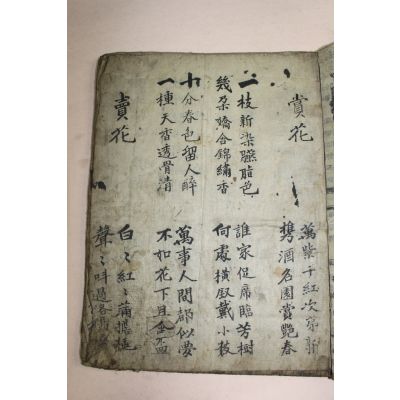 賞花
萬紫千紅次第新
携酒名園賞艶春
二枝新染臙脂色 誰家促席臨芳樹
幾朶嬌含錦繡香 何處橫釵戴小枝
十分春色留人醉 萬事人間都似夢
一種天香透骨清 不如花下且金盃
賣花
白〻紅〻滿擔
聲〻叫過洛